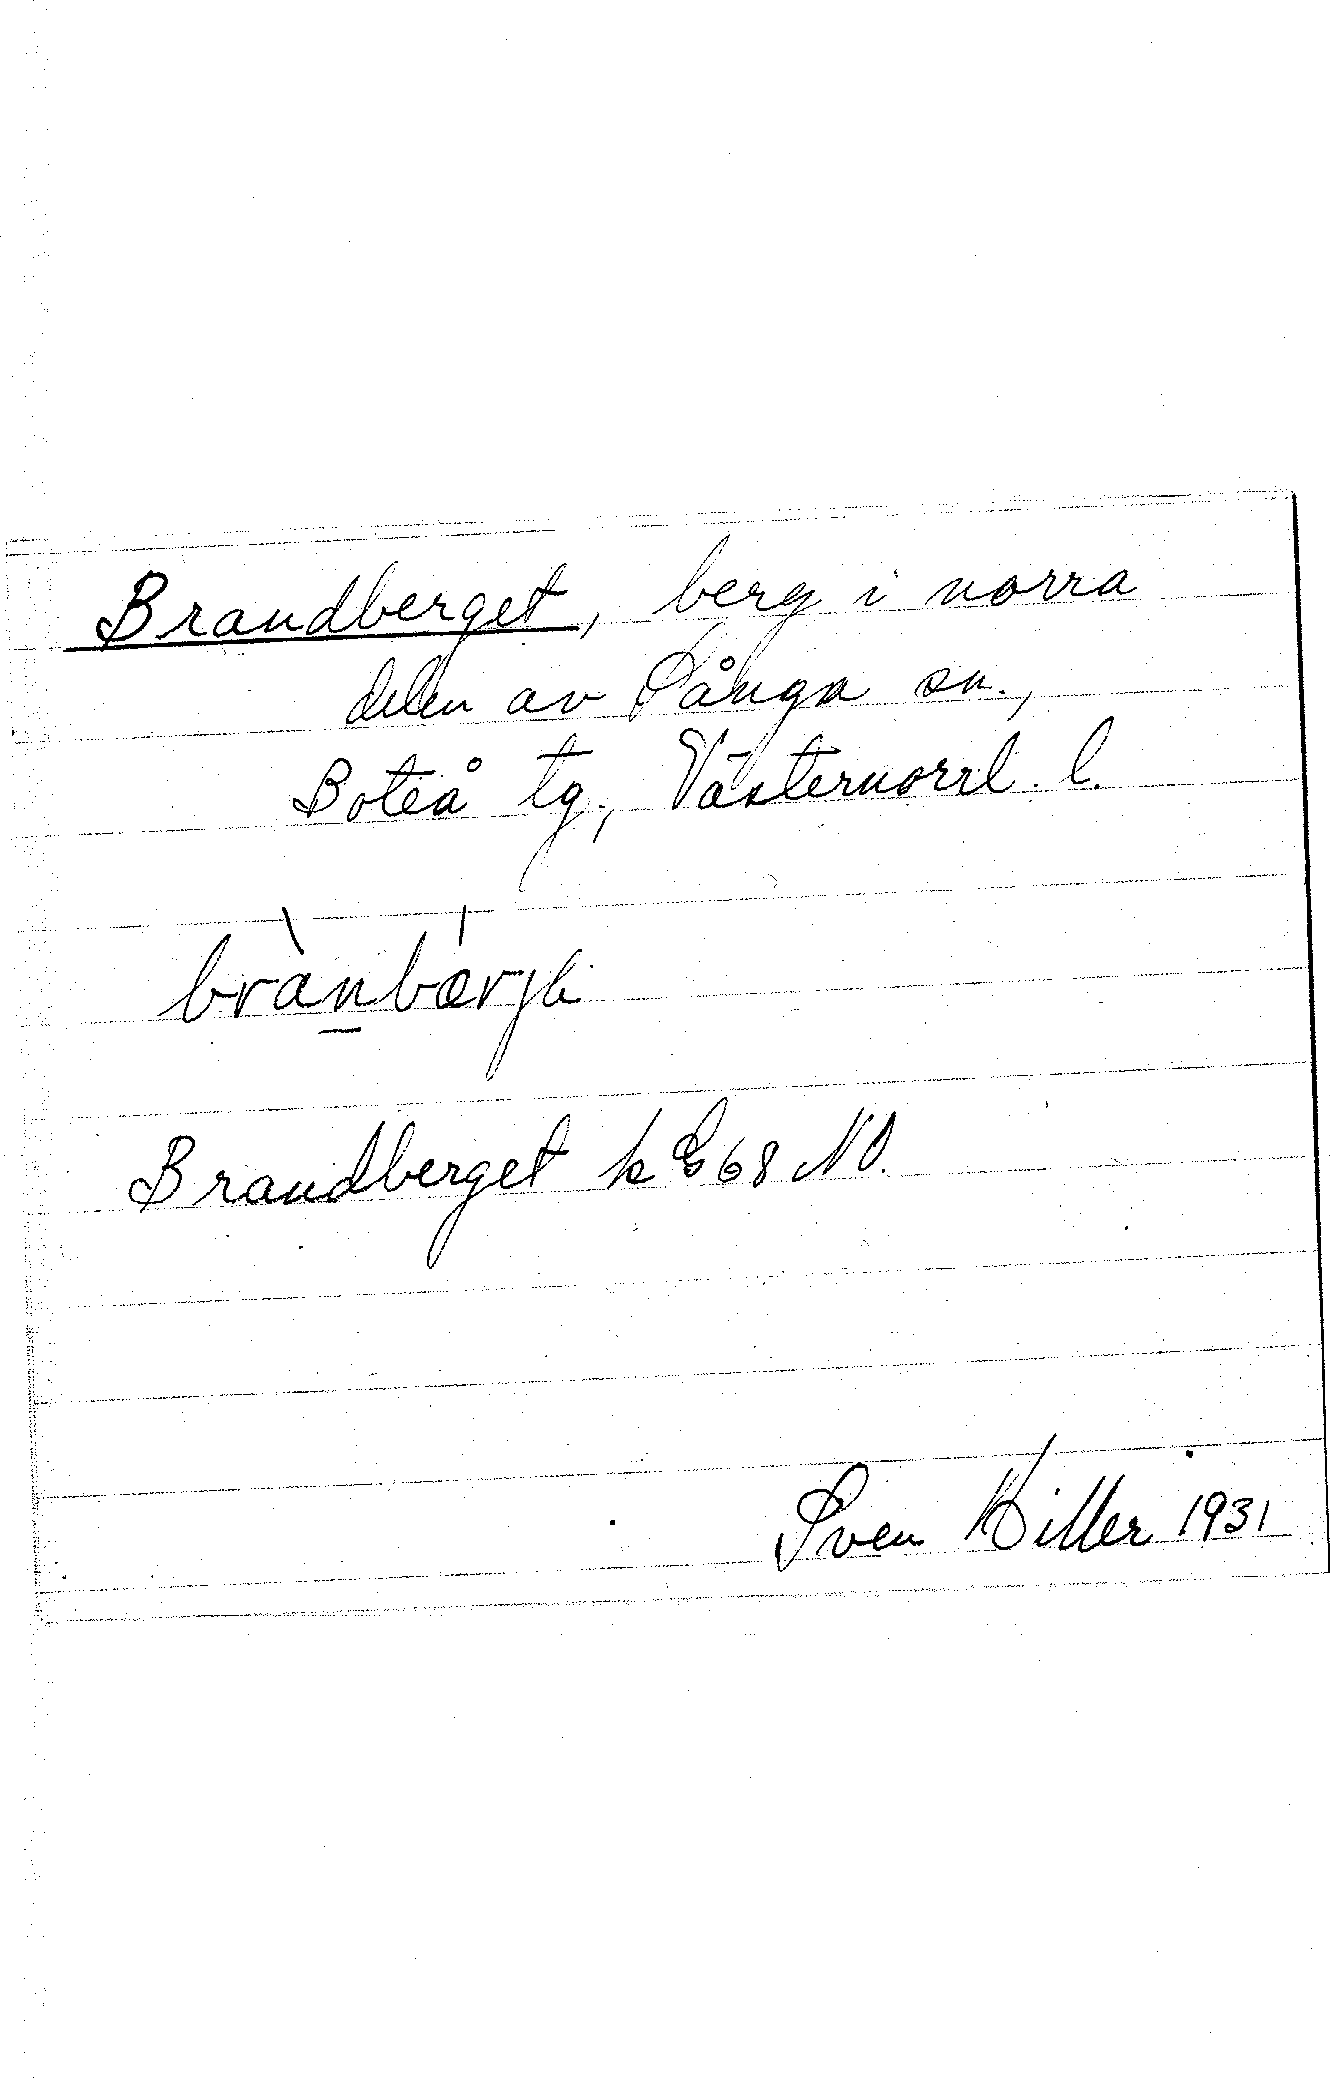 Brandberget, berg i norra
delen av Sånga sn.,
Boteå tg., Västernorrl. l.
Brandberget k 68 NO.
Sven Hiller 1931